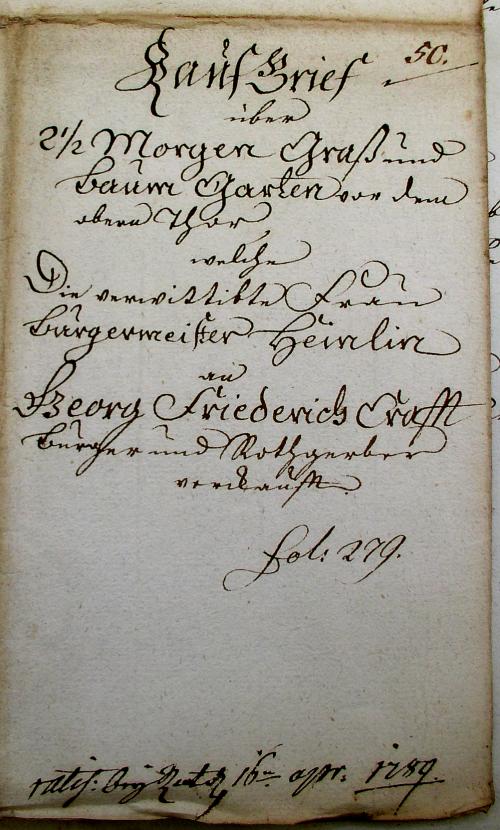 Kauf Brief 50.
über
2 1/2 Morgen Graß und
Baum Garten vor dem
obern Thor,
welche
Die verwittibte Frau
Bürgermeister Heinlin
an
Georg Friederich Crafft
Burger und Rothgerber
verckaufft.
Fol: 279.
ratif: bey Rath 16 apr. 1789.